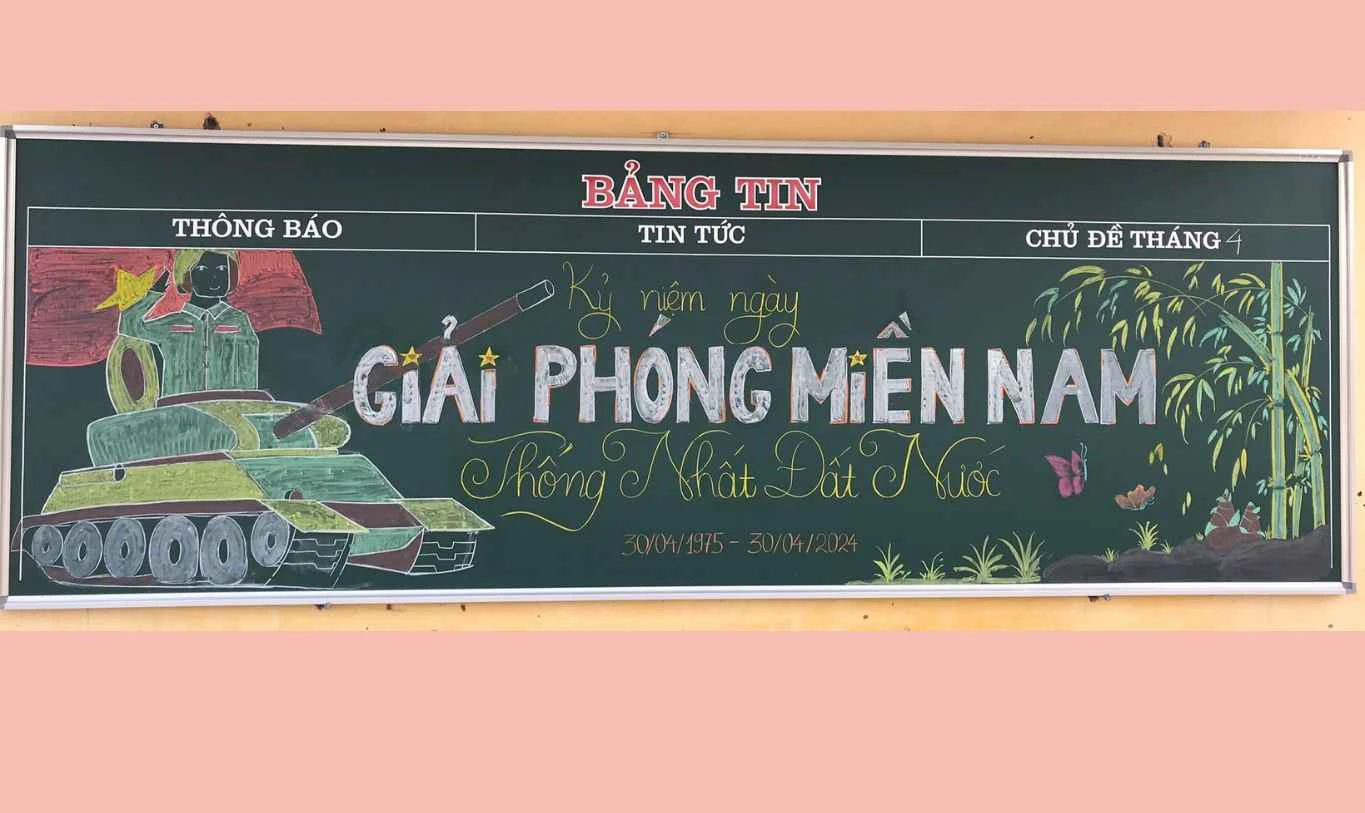 BẢNG TIN
THÔNG BÁO
TIN TỨC
CHỦ ĐỀ THÁNG 4
Kỷ niệm ngày
GIẢI PHÓNG MIỀN NAM
Thống Nhất Đất Nước
30/04/1975 - 30/04/2024